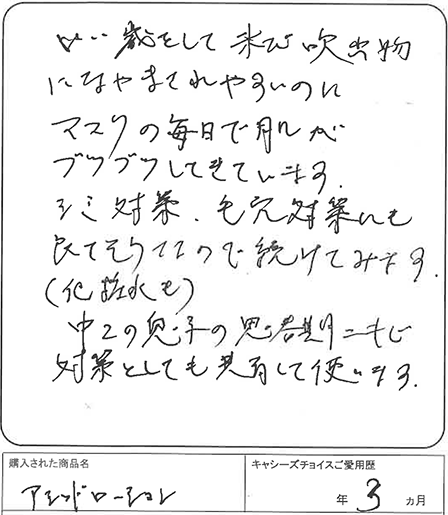 いい歳をして未だ吹出物
になやまされやすいのに
マスクの毎日で肌が
ブツブツしてきています.
シミ対策、毛穴対策にも
良てそうなので続けてみます.
(化粧水も)
中2の息子の思春期ニキビ
対策としても共有して使います.
購入された商品名
アシッドローション
キャシーズチョイスご愛用歴
年 3 ヵ月